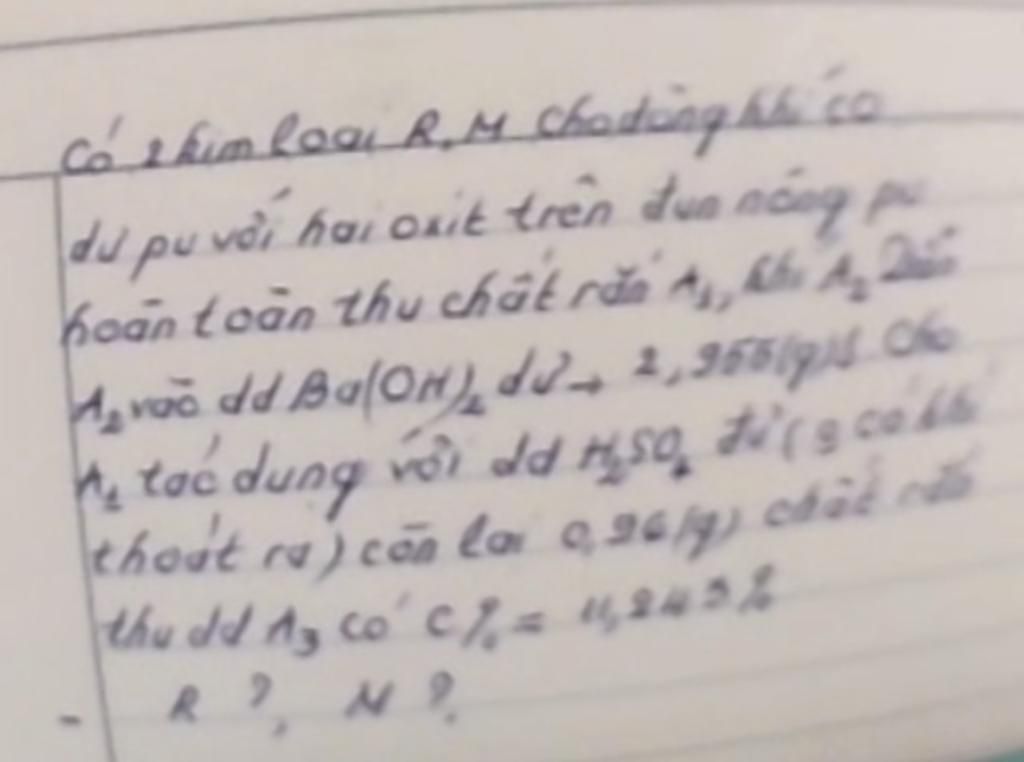 Có 2 kim loại R, M cho dòng khí CO
dư pư với hai oxit trên đun nóng pư
hoàn toàn thu chất rắn A1, khí A2 Dẫn
A2 vào dd Ba(OH)2 dư → 2,955(g)↓ Cho
A1 tác dụng với dd H2SO4 đủ ( có khí
thoát ra) còn lại 0,96(g) chất rắn
thu dd A3 có C% = 11,243%
- R ?, M ?